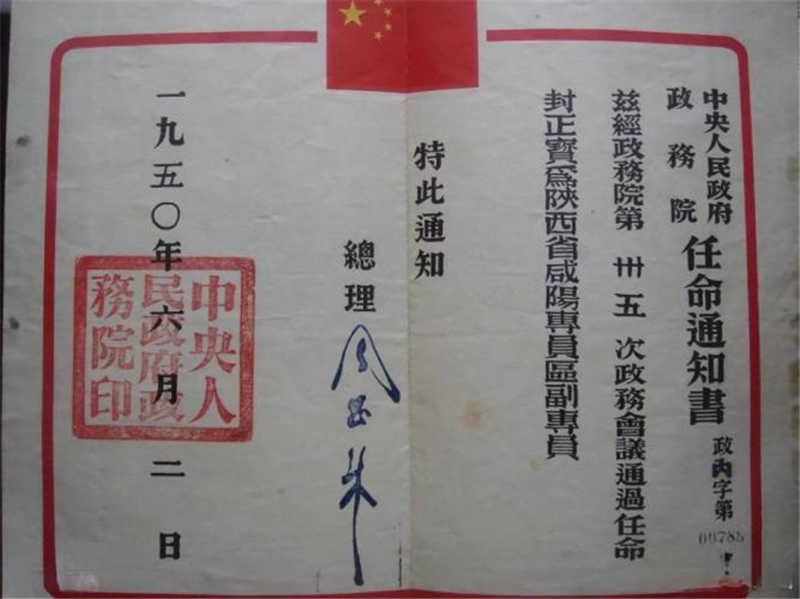 中央人民政府
政務院
任命通知書
政內字第
00785
茲經政務院第卅五次政務會議通過任命
封正寶爲陝西省咸陽專員區副專員
特此通知
總理
周恩来
一九五〇年六月二日
中央人民政府政務院印